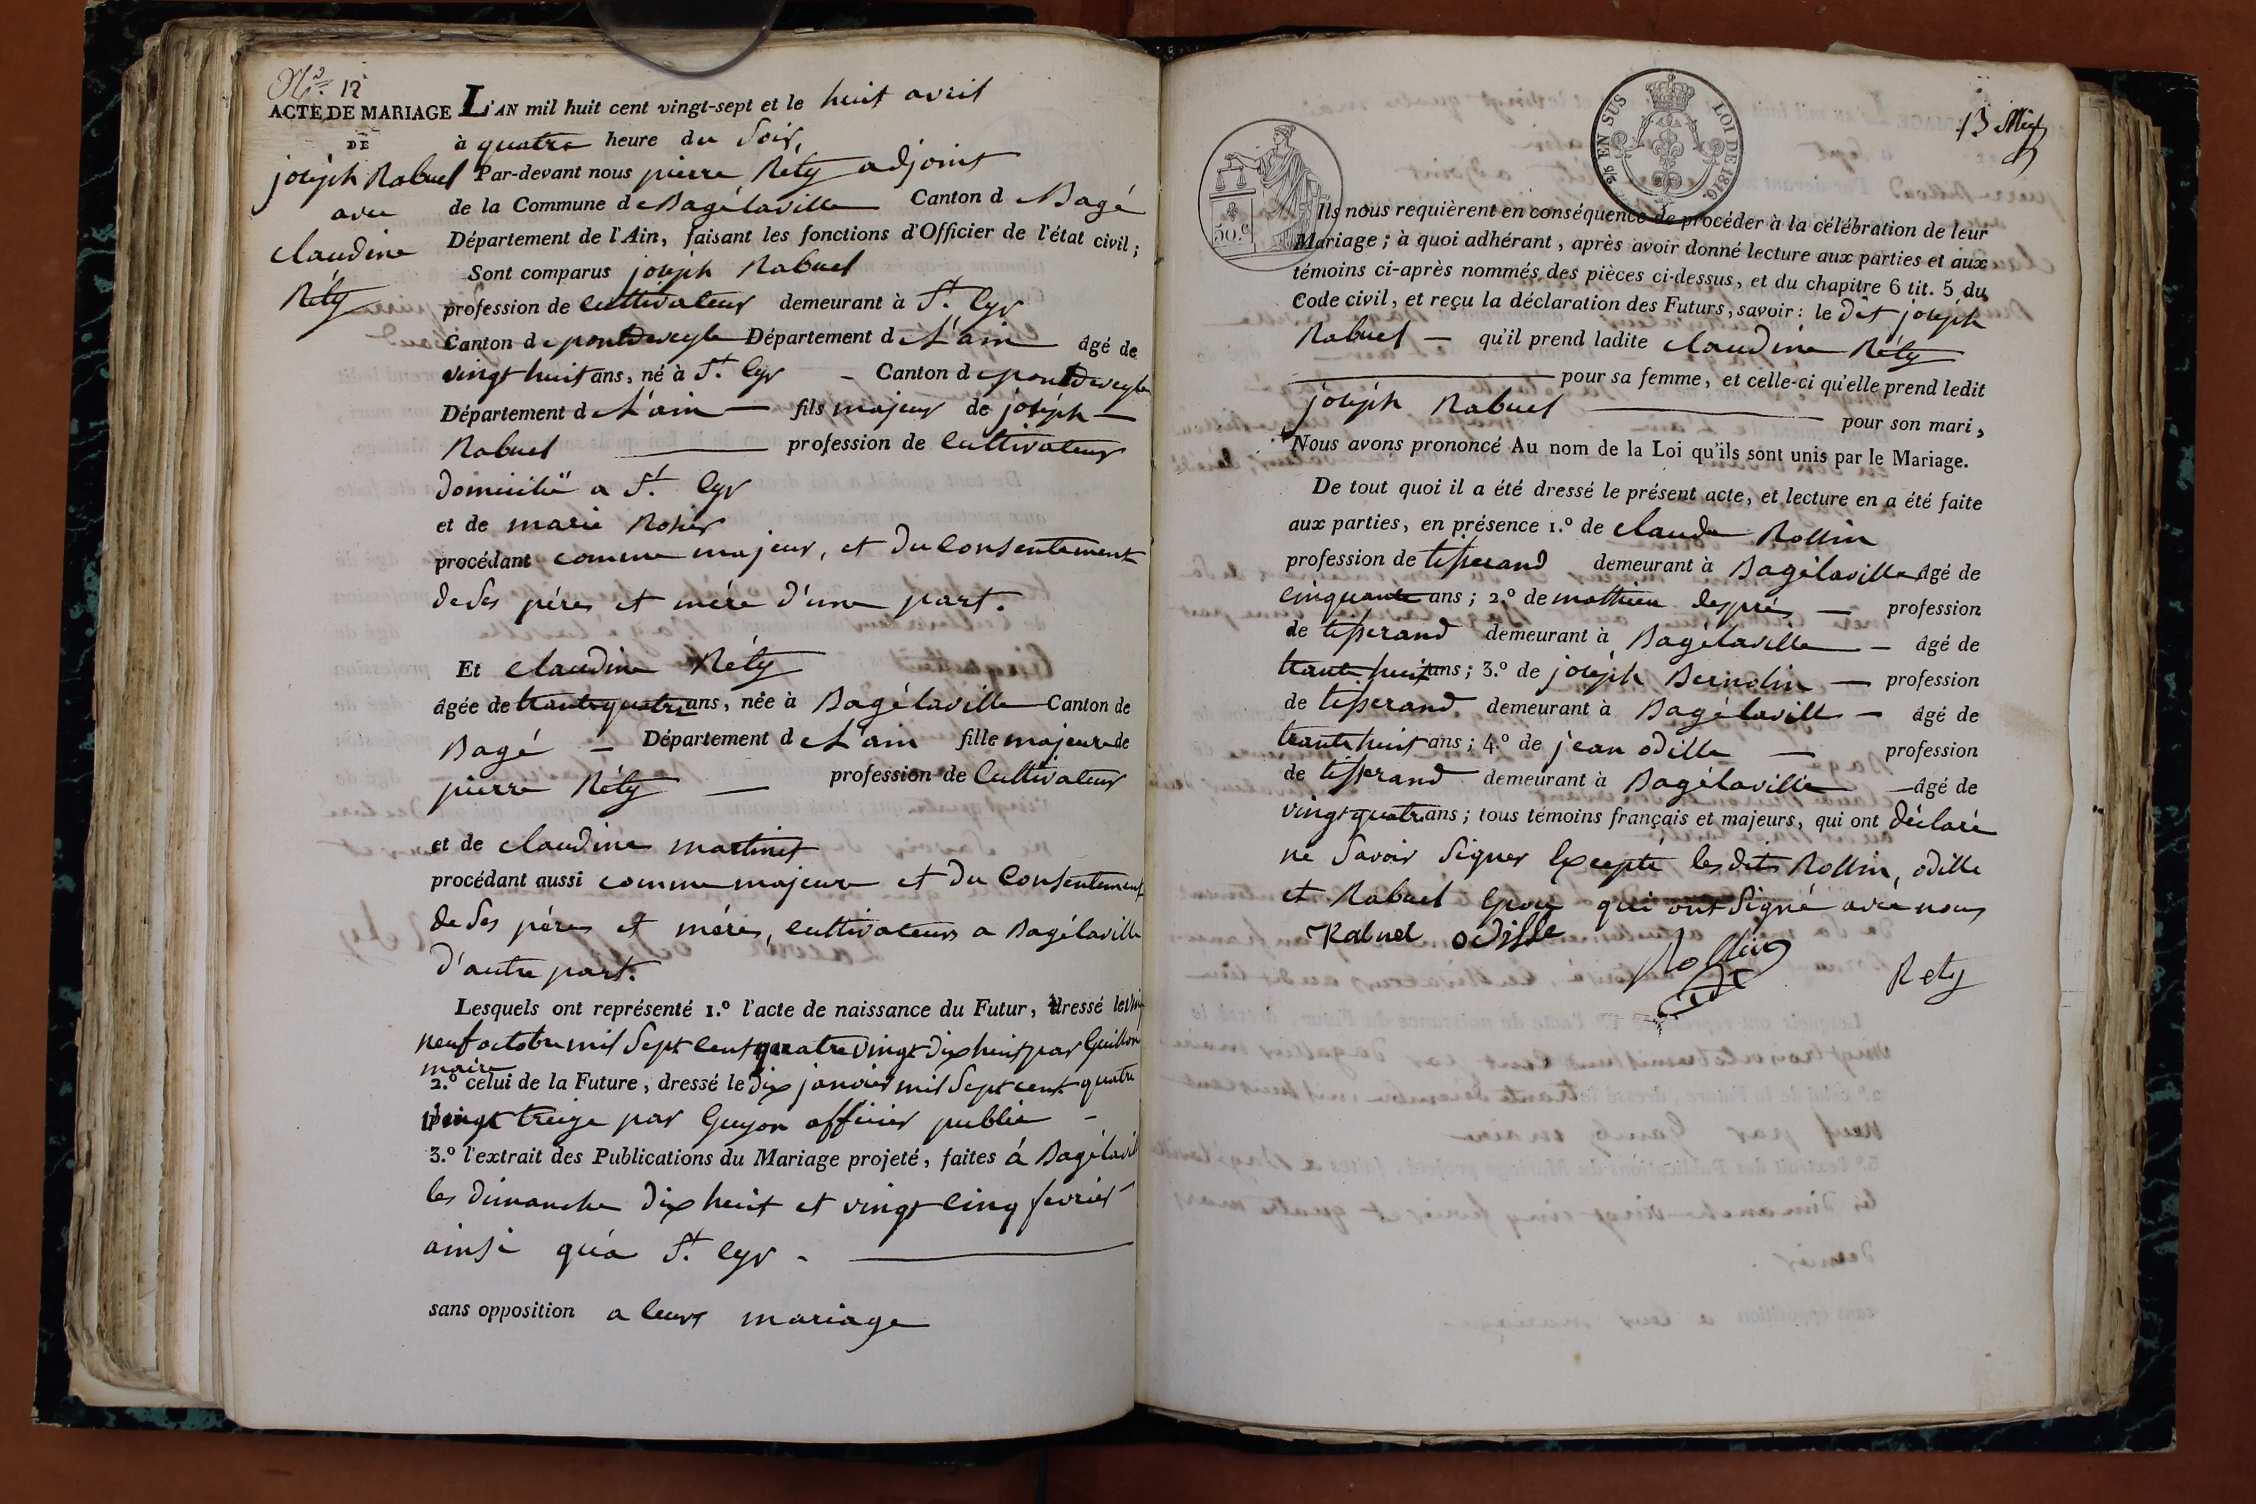 N.° 12
ACTE DE MARIAGE
DE
joseph Rabuel
avec
claudine
Réty
L'AN mil huit cent vingt-sept et le huit avril
à quatre heure du Soir,
Par-devant nous pierre Réty adjoint
de la Commune de Bagélaville Canton d Bagé
Département de l'Ain, faisant les fonctions d'Officier de l'état civil;
Sont comparus joseph Rabuel
profession de Cultivateur demeurant à St. Cyr
Canton de pontdeveyle Département de L'ain âgé de
vingt huit ans, né à St. Cyr - Canton de pontdeveyle
Département de L'ain — fils majeur de joseph —
Rabuel — profession de Cultivateur
Domicilié a St. Cyr
et de marie
procédant comme majeur, et du Consentement
de Ses pére et mére d'une part.
Et claudine Réty
âgée de trante quatre ans, née à Bagélaville Canton de
Bagé — Département de L'ain fille majeure de
pierre Réty — profession de Cultivateur
et de claudine martinet
procédant aussi comme majeure et du Consentement
de Ses péres et méres, cultivateurs a Bagélaville
d'autre part.
Lesquels ont représenté 1.° l'acte de naissance du Futur, dressé le
neuf octobre mil Sept Cent quatre vingt dix huit par Guillon
maire
2.° celui de la Future, dressé le dix janvier mil Sept cent quatre
vingt treize par Guyon officier public -
3.° l'extrait des Publications du Mariage projeté, faites à Bagélavil
les dimanche dix huit et vingt Cinq fevrier
ainsi qu'a St. Cyr -
sans opposition a leurs mariage
2/5 EN SUS
LOI DE 1816.
50.c
13
Ils nous requièrent en conséquence de procéder à la célébration de leur
Mariage; à quoi adhérant, après avoir donné lecture aux parties et aux
témoins ci-après nommés des pièces ci-dessus, et du chapitre 6 tit. 5 du
Code civil, et reçu la déclaration des Futurs, savoir: le dit joseph
Rabuel — qu'il prend ladite claudine Réty
— pour sa femme, et celle-ci qu'elle prend ledit
joseph Rabuel — pour son mari,
Nous avons prononcé Au nom de la Loi qu'ils sont unis par le Mariage.
De tout quoi il a été dressé le présent acte, et lecture en a été faite
aux parties, en présence 1.° de claude Rollin
profession de tisserand demeurant à Bagélaville âgé de
Cinquante ans; 2.° de mathieu després — profession
de tisserand demeurant à Bagélaville — âgé de
trante huit ans; 3.° de joseph Bernolin — profession
de tisserand demeurant à Bagélaville — âgé de
trante huit ans; 4.° de jean odille — profession
de tisserand demeurant à Bagélaville — âgé de
vingt quatre ans; tous témoins français et majeurs, qui ont déclaré
ne Savoir Signer Excepté les dits Rollin, odille
et Rabuel Epou qui ont Signé avec nous
Rabuel odille
Rollin
Rety